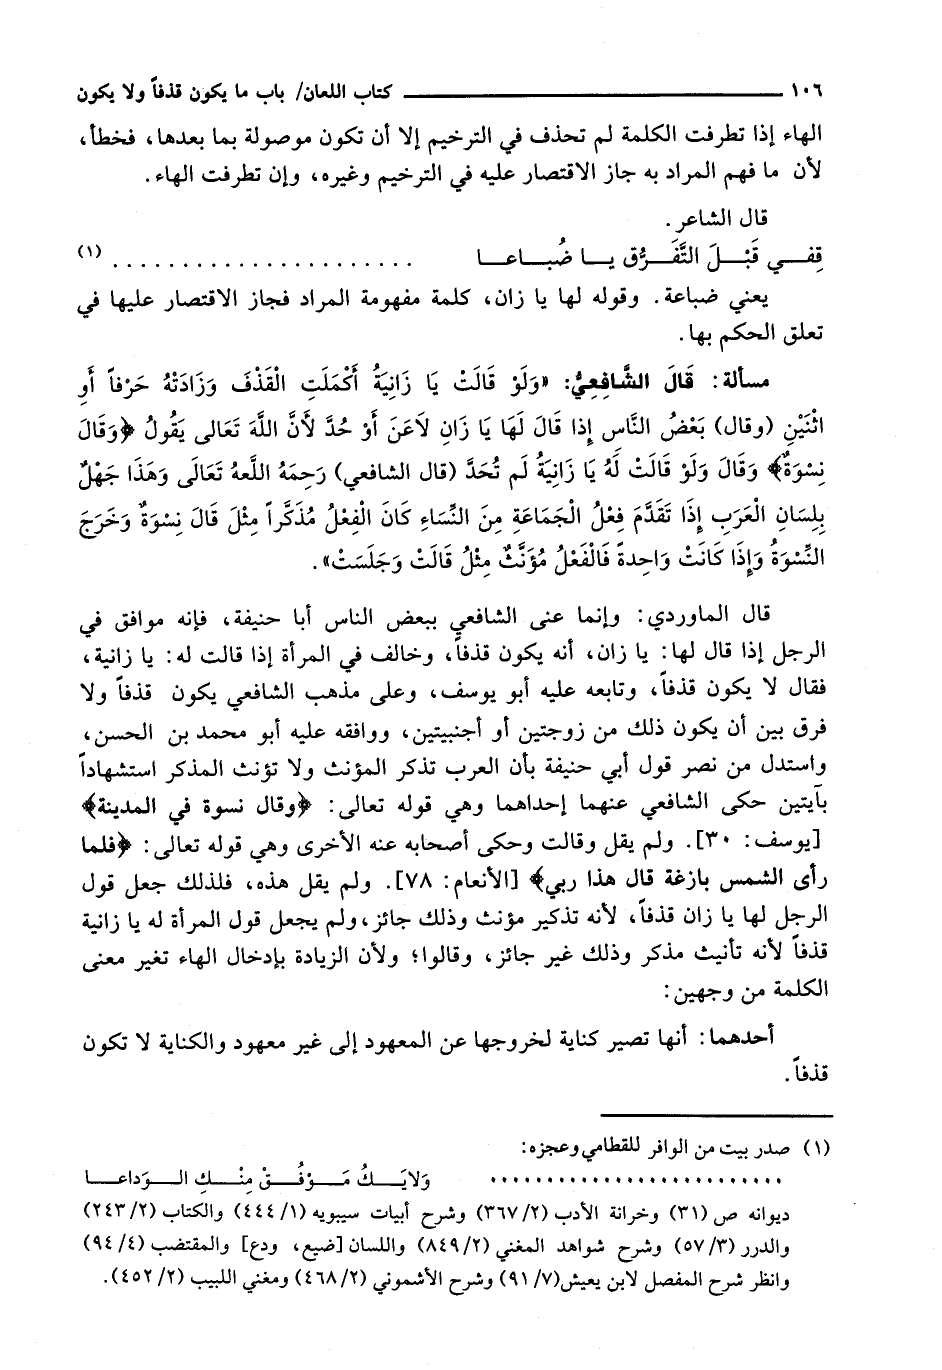 ١٠٦ كتاب اللعان/ باب ما يكون قذفاً ولا يكون
الهاء إذا تطرفت الكلمة لم تحذف في الترخيم إلا أن تكون موصولة بما بعدها، فخطأ،
لأن ما فهم المراد به جاز الاقتصار عليه في الترخيم وغيره، وإن تطرفت الهاء.
قال الشاعر.
قِفـــي قَبْـــلَ التَّفَـــرُّق يـــا ضُبـــاعـــا . . . . . . . . . . . . . . . . . . . . . . (١)
يعني ضباعة. وقوله لها يا زان، كلمة مفهومة المراد فجاز الاقتصار عليها في
تعلق الحكم بها.
مسألة: قَالَ الشَّافِعِيُّ: «وَلَوْ قَالَتْ يَا زَانِيَةُ أَكْمَلَتِ الْقَذْفَ وَزَادَتْهُ حَرْفاً أَوِ
اثْنَيْنِ (وقال) بَعْضُ النَّاسِ إِذَا قَالَ لَهَا يَا زَانِ لاَعَنَ أَوْ حُدَّ لأَنَّ اللَّهَ تَعَالى يَقُولُ ﴿وَقَالَ
نِسْوَةٌ﴾ وَقَالَ وَلَوْ قَالَتْ لَهُ يَا زَانِيَةُ لَم تُحَدَّ (قال الشافعي) رَحِمَهُ اللعهُ تَعَالَى وَهَذَا جَهْلٌ
بِلِسَانِ الْعَرَبِ إِذَا تَقَدَّمَ فِعْلُ الْجَمَاعَةِ مِنَ النِّسَاءِ كَانَ الْفِعْلُ مُذَكَّراً مِثْلَ قَالَ نِسْوَةٌ وَخَرَجَ
النِّسْوَةُ وَإِذَا كَانَتْ وَاحِدةً فَالْفَعْلُ مُؤَنَّثٌ مِثْلُ قَالَتْ وَجَلَسَتْ».
قال الماوردي: وإنما عنى الشافعي ببعض الناس أبا حنيفة، فإنه موافق في
الرجل إذا قال لها: يا زان، أنه يكون قذفاً، وخالف في المرأة إذا قالت له: يا زانية،
فقال لا يكون قذفاً، وتابعه عليه أبو يوسف، وعلى مذهب الشافعي يكون قذفاً ولا
فرق بين أن يكون ذلك من زوجتين أو أجنبيتين، ووافقه عليه أبو محمد بن الحسن،
واستدل من نصر قول أبي حنيفة بأن العرب تذكر المؤنث ولا تؤنث المذكر استشهاداً
بآيتين حكى الشافعي عنهما إحداهما وهي قوله تعالى: ﴿وقال نسوة في المدينة﴾
[يوسف: ٣٠]. ولم يقل وقالت وحكى أصحابه عنه الأخرى وهي قوله تعالى: ﴿فلما
رأى الشمس بازغة قال هذا ربي﴾ [الأنعام: ٧٨]. ولم يقل هذه، فلذلك جعل قول
الرجل لها يا زان قذفاً، لأنه تذكير مؤنث وذلك جائز، ولم يجعل قول المرأة له يا زانية
قذفاً لأنه تأنيث مذكر وذلك غير جائز، وقالوا؛ ولأن الزيادة بإدخال الهاء تغير معنى
الكلمة من وجهين:
أحدهما: أنها تصير كناية لخروجها عن المعهود إلى غير معهود والكناية لا تكون
قذفاً.
(١) صدر بيت من الوافر للقطامي وعجزه:
. . . . . . . . . . . . . . . . . . . . . . . . . وَلايَـــكُ مَـــوْفُـــقٌ مِنْـــكِ الـــوَداعـــا
ديوانه ص (٣١) وخرانة الأدب (٣٦٧/٢) وشرح أبيات سيبويه (٤٤٤/١) والكتاب (٢٤٣/٢)
والدرر (٥٧/٣) وشرح شواهد المغني (٨٤٩/٢) واللسان [ضيع، ودع] والمقتضب (٩٤/٤)
وانظر شرح المفصل لابن يعيش(٩١/٧) وشرح الأشموني (٤٦٨/٢) ومغني اللبيب (٤٥٢/٢).